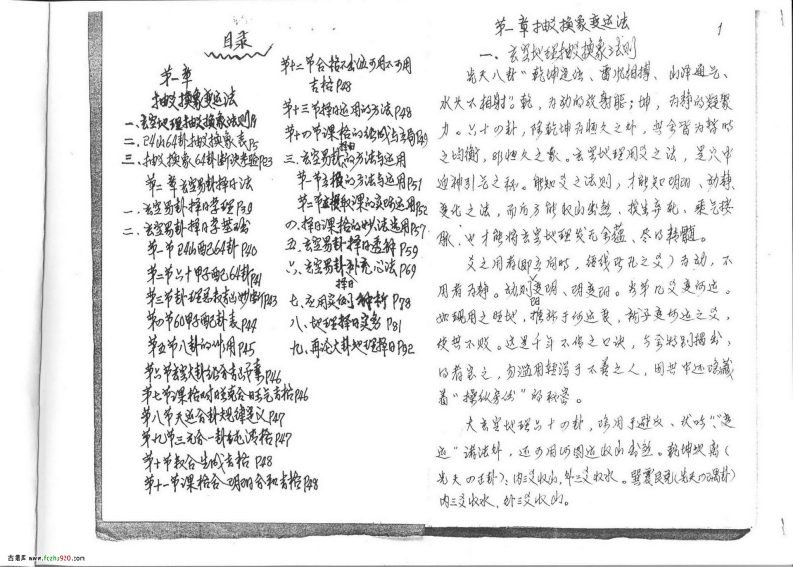 目录
第一章
抽爻换象变运法
一、玄空地理抽爻换象法则P1
二、24山64卦抽爻换象表P5
三、抽爻换象64卦断决老验P23
第二章玄空易卦择日法
一、玄空易卦择日学理P39
二、玄空易卦择日学基础
第一节24山配64卦P40
第二节六十甲子配64卦P41
第三节卦理总表玄妙断P43
第四节60甲子配卦表P44
第五节八卦的作用P45
第六节玄空大卦
第七节课格时旺克合旺气吉格P46
第八节天运合卦规律定义P47
第九节三元合一卦纯清格P47
第十节数合生成吉格P48
第十一节课格合阴阳合和吉格P48
第十二节合格不出位可用不可用
吉格P48
第十三节择日运用的方法P48
第十四节课格的组成与立局P49
三、玄空易卦择日的方法与运用
第一节玄機的方法与运用P51
第二节玄機取课的实践运用P52
四、择日课格的妙法运用P57
五、玄空易卦择日透解P59
六、玄空易卦择日补充心法P69
七、应用实例解析P78
八、地理择日实务P81
九、再论大卦地理择日P82
第一章抽爻换象变运法
1
一、玄空地理抽爻换象法则
先天八卦“乾坤定位、雷风相搏、山泽通气、
水火不相射”。乾，为动的放射能；坤，为静的凝聚
力。六十四卦，除乾坤为恒久之外，其余皆为暂时
之均衡，非恒久之象。玄空地理用爻之法，是穴中
迎神引气之秘。能知爻之法则，才能知阴阳、动静
变化之法，而后方能收山出煞、挨生弃死、乘气接
脉、也才能将玄空地理发无余蕴、尽得精髓。
爻之用者(即立向时，经线所孔之爻)为动，不
用者为静。动则变阴阳、阴变阳。
如现用之阴地，
使其不败。这是千年不传之口诀，今特别揭出，
得者宝之，勿滥用轻泄于不善之人，因其中还隐藏
着“操纵家伙”的秘密。
大玄空地理六十四卦，除用于避凶、伏吟“变
运”诸法外，还可用以图运收山出煞。乾坤坎离(
先天四正卦)：内三爻收山，外三爻收水。巽震艮兑(先天四隅卦)
内三爻收水，外三爻收山。
吉善库 www.fczhu920.com